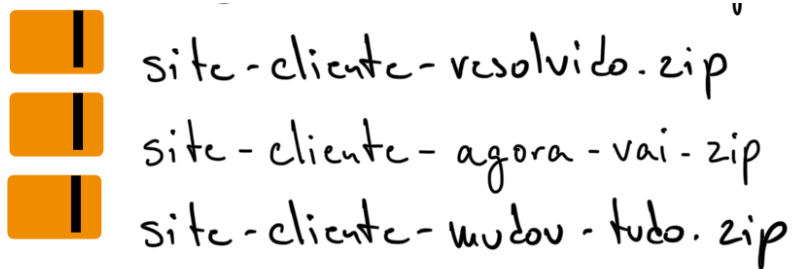 site-cliente-resolvido.zip
site-cliente-agora-vai-zip
site-cliente-mudou-tudo.zip